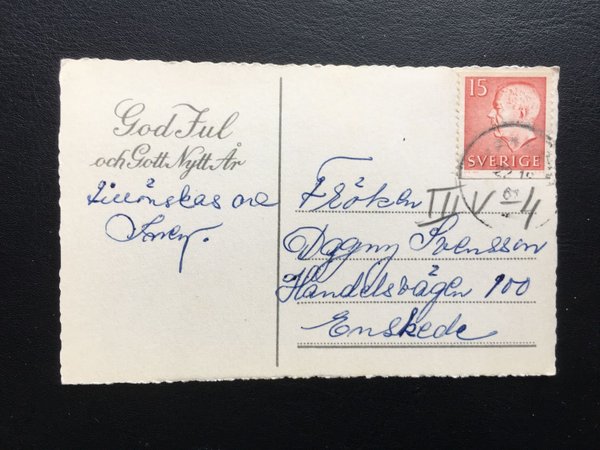 God Jul
och Gott Nytt År
Tillönskas av
15
SVERIGE
Fröken
III V-4
Dagny Svensson
Handelsvägen 100
Enskede